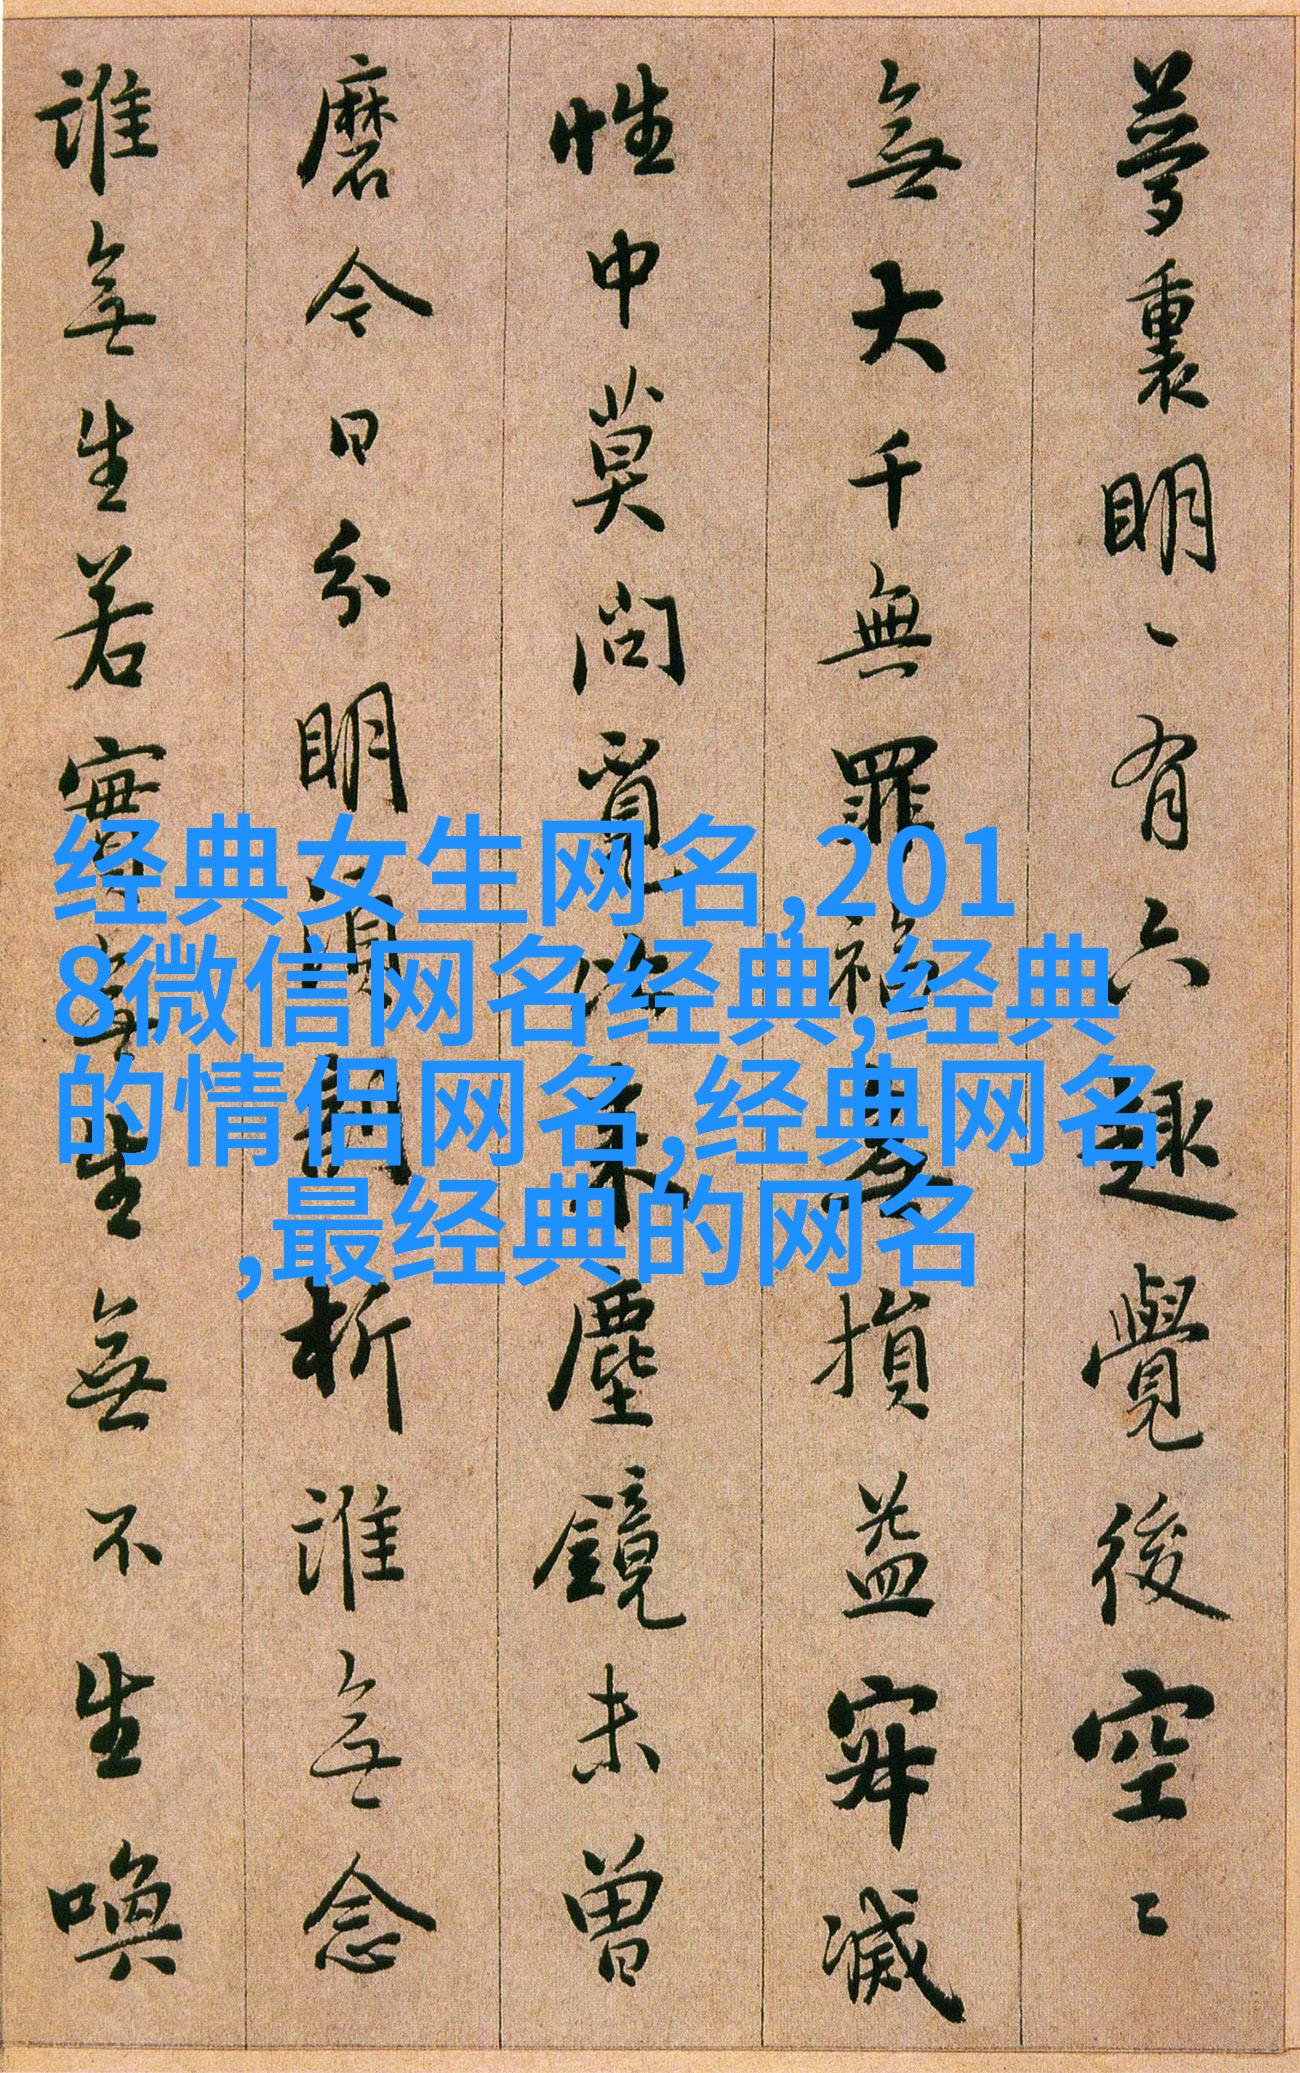 夢裏明〻有六趣覺後空〻
無大千無罪福無損益寂滅
性中莫問覓比来塵鏡未曾
磨今日分明須剖析誰無念
誰無生若實無生無不生喚
经典女生网名,201
8微信网名经典,经典
的情侣网名,经典网名
,最经典的网名